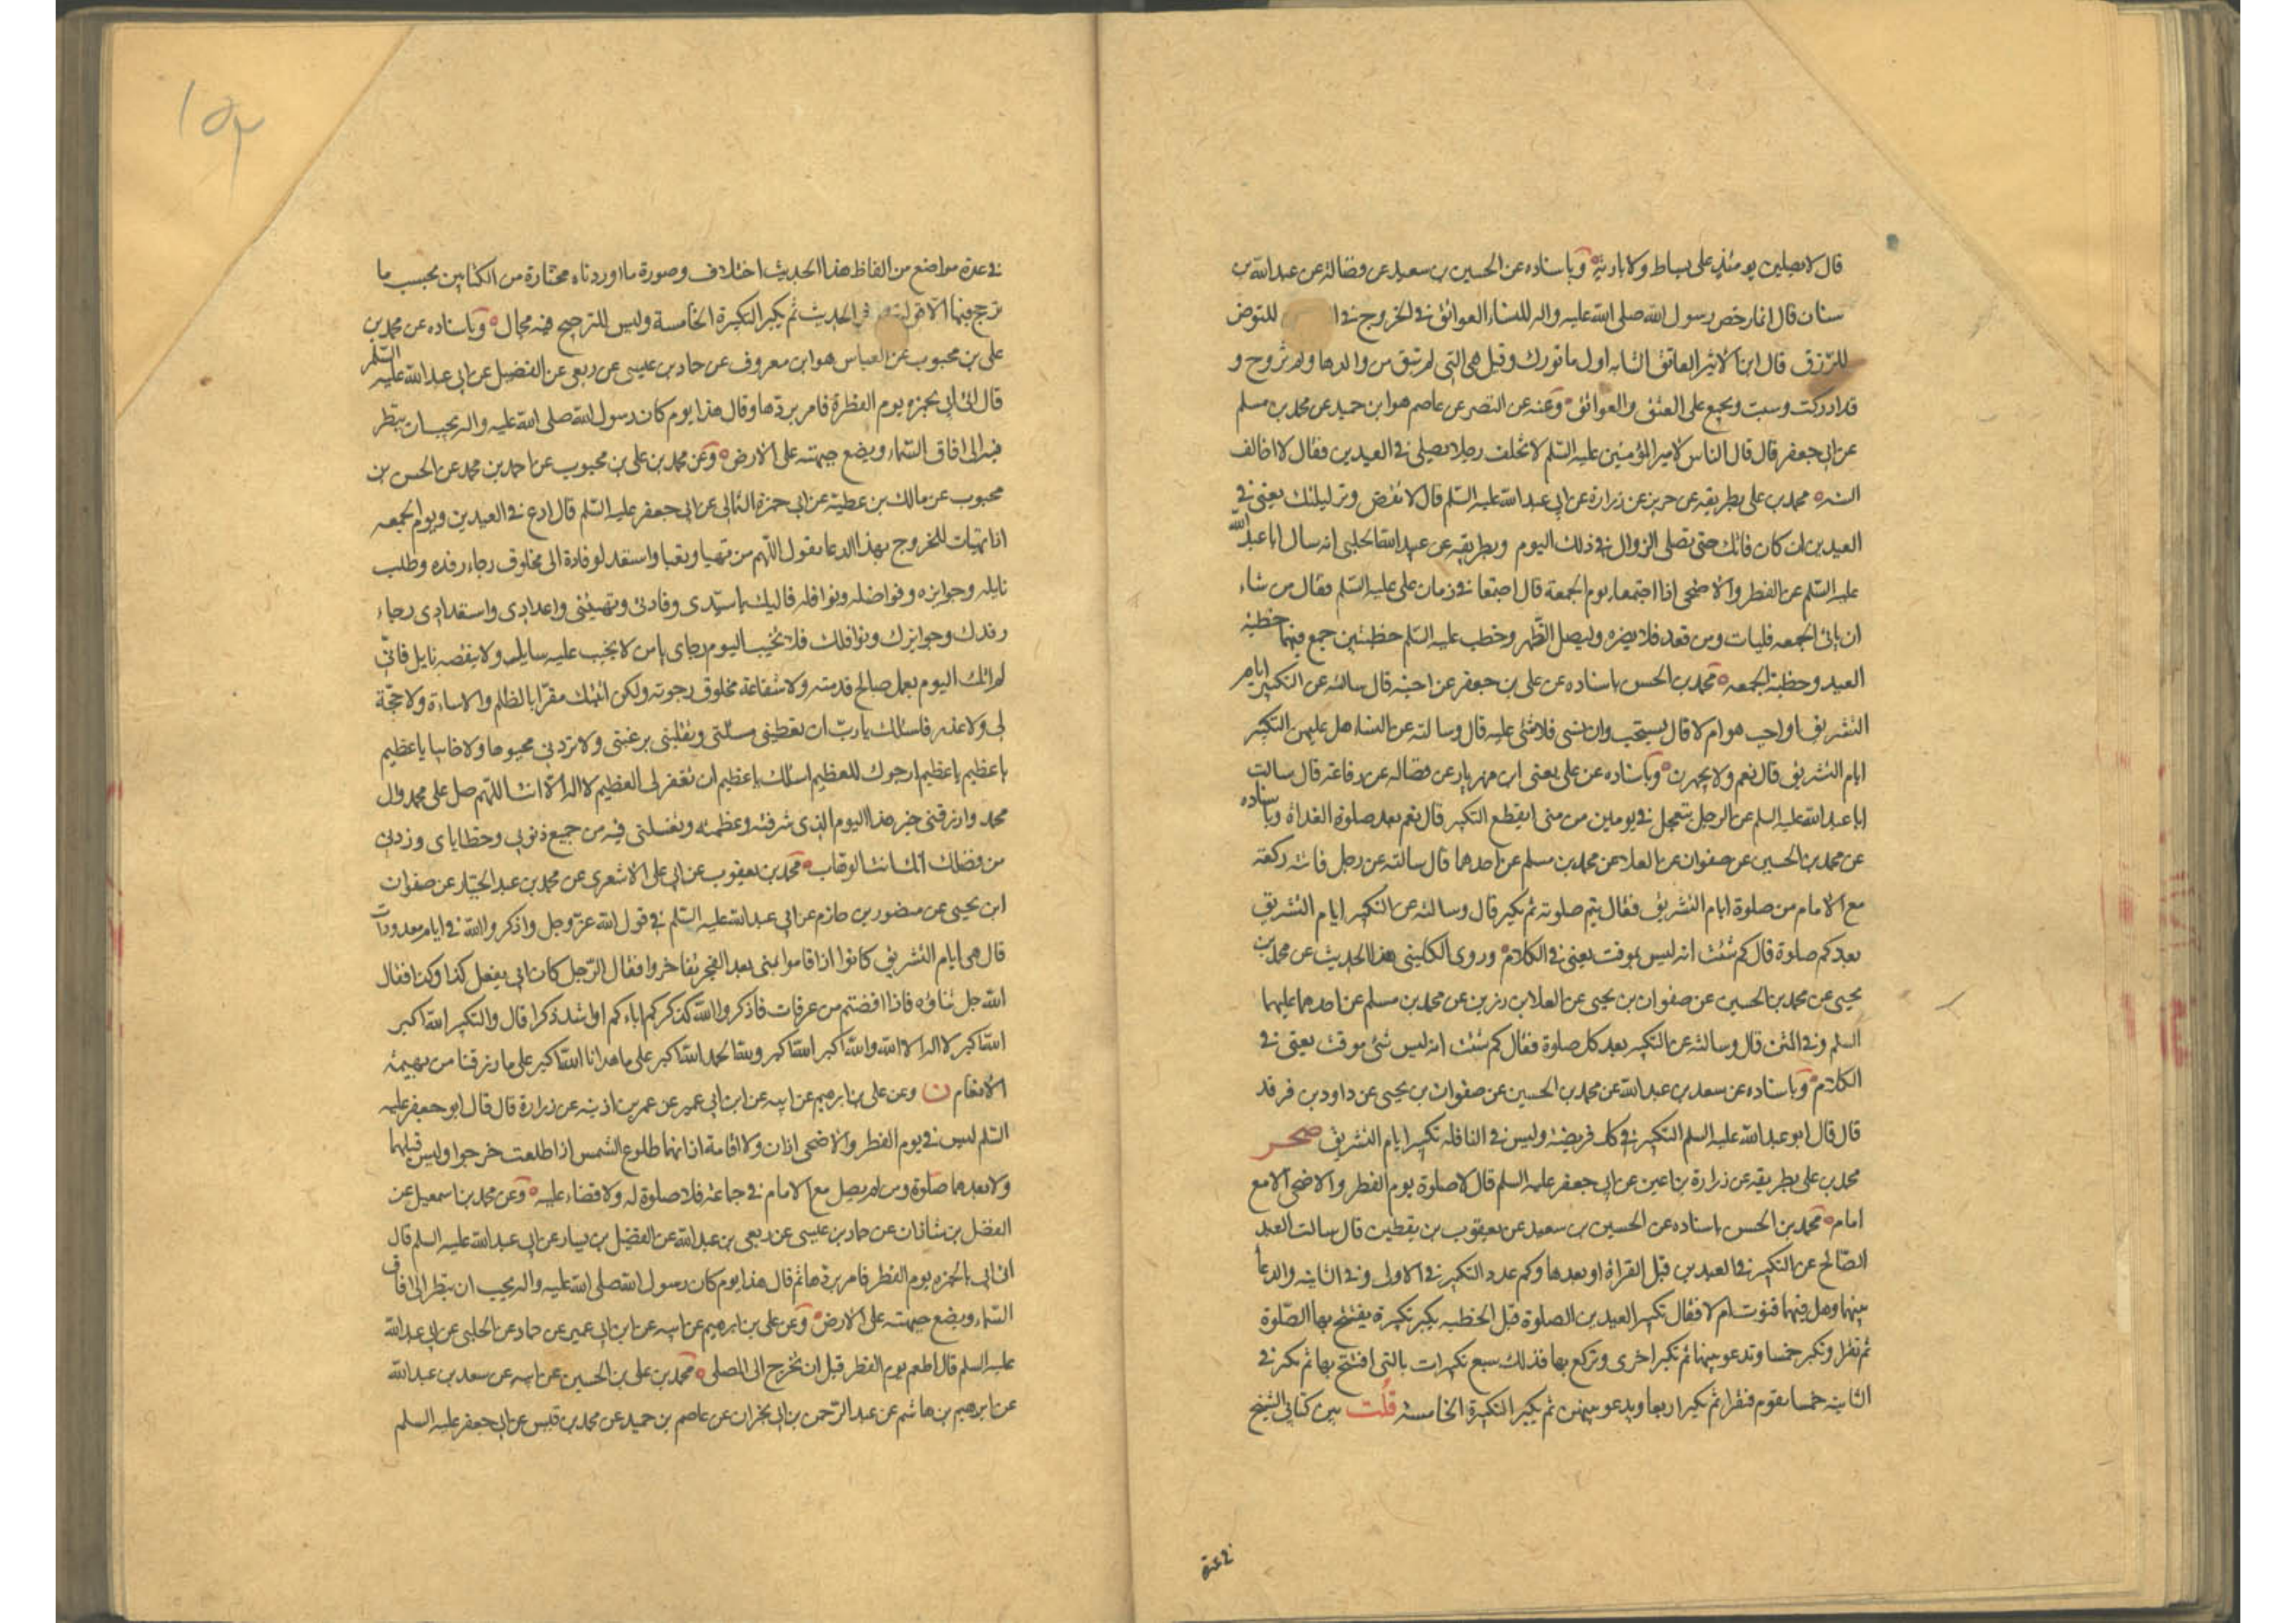 قال لا يصلين يومئذ على بساط ولا بارية وباسناده عن الحسين بن سعيد عن فضالة عن عبد الله بن
سنان قال انما رخص رسول الله صلى الله عليه واله للنساء العوائق في الخروج في ا للتعرض
للرزق قال ابن الاثير العاتق الشابه اول ما تدرك وقيل هي التي لم تبن من والدها ولم تزوج و
قد ادركت وسبت ويجمع على العتق والعوائق وعنه عن النضر عن عاصم هو ابن حميد عن محمد بن مسلم
عن ابي جعفر قال قال الناس لامير المؤمنين عليه السلم لا تخلف رجلا يصلي في العيدين فقال لا اخالف
السنه محمد بن علي بطريقه عن حريز عن زرارة عن ابي عبد الله عليه السلم قال لا تقض وتر ليلتك يعني في
العيدين ان كان فاتك حتى تصلي الزوال في ذلك اليوم وبطريقه عن عبيد الله الحلبي انه سال ابا عبد الله
عليه السلم عن الفطر والاضحى اذا اجتمعا يوم الجمعة قال اجتمعا في زمان علي عليه السلم فقال من شاء
ان ياتي الجمعه فليات ومن قعد فلا يضره وليصل الظهر وخطب عليه السلم خطبتين جمع فيهما خطبة
العيد وخطبة الجمعه محمد بن الحسن باسناده عن علي بن جعفر عن اخيه قال سالته عن التكبير ايام
التشريق اواجب هو ام لا قال يستحب وان نسي فلا شئ عليه قال وسالته عن النساء هل عليهن التكبير
ايام التشريق قال نعم ولا يجهرن وباسناده عن علي يعني ابن مهزيار عن فضاله عن رفاعة قال سالت
ابا عبد الله عليه السلم عن الرجل يتعجل في يومين من منى ايقطع التكبير قال نعم بعد صلوة الغداة وباسناده
عن محمد بن الحسين عن صفوان عن العلا عن محمد بن مسلم عن احدهما قال سالته عن رجل فاته ركعة
مع الامام من صلوة ايام التشريق فقال يتم صلوته ثم يكبر قال وسالته عن التكبير ايام التشريق
بعد كم صلوة قال كم شئت انه ليس بموقت يعني في الكلام وروى الكليني هذا الحديث عن محمد بن
يحيى عن محمد بن الحسين عن صفوان بن يحيى عن العلا بن رزين عن محمد بن مسلم عن احدهما عليهما
السلم وفي المتن قال وسالته عن التكبير بعد كل صلوة فقال كم شئت انه ليس شئ موقت يعني في
الكلام وباسناده عن سعد بن عبد الله عن محمد بن الحسين عن صفوان بن يحيى عن داود بن فرقد
قال قال ابو عبد الله عليه السلم التكبير في كل فريضة وليس في النافله تكبير ايام التشريق صحر
محمد بن علي بطريقه عن زرارة بن اعين عن ابي جعفر عليه السلم قال لا صلوة يوم الفطر والاضحى الا مع
امام محمد بن الحسن باسناده عن الحسين بن سعيد عن يعقوب بن يقطين قال سالت العبد
الصالح عن التكبير في العيدين قبل القراة او بعدها وكم عدد التكبير في الاولى وفي الثانيه والدعا
بينهما وهل فيهما قنوت ام لا فقال تكبير العيدين الصلوة قبل الخطبه يكبر تكبيرة يفتتح بها الصلوة
ثم تقرا وتكبر خمسا وتدعو بينهما ثم تكبر اخرى وتركع بها فذلك سبع تكبيرات بالتي افتتح بها ثم تكبر في
الثانيه خمسا يقوم فيقرا ثم يكبر اربعا ويدعو بينهن ثم يكبر التكبيرة الخامسة قلت بين كتابي الشيخ
في عدة
في عدة مواضع من الفاظ هذا الحديث اختلاف وصورة ما اوردناه مختارة من الكتابين بحسب ما
ترجح فيهما الا في الحديث ثم يكبر التكبيرة الخامسة وليس للترجيح فيه مجال وباسناده عن محمد بن
علي بن محبوب عن العباس هو ابن معروف عن حماد بن عيسى عن ربعي عن الفضيل عن ابي عبد الله عليه السلم
قال اتى ابي بخمرة يوم الفطرة فامر بردها وقال هذا يوم كان رسول الله صلى الله عليه واله يحب ان ينظر
فيه الى افاق السماء ويضع جبهته على الارض وعن محمد بن علي بن محبوب عن احمد بن محمد عن الحسن بن
محبوب عن مالك بن عطية عن ابي حمزة الثمالي عن ابي جعفر عليه السلم قال ادع في العيدين ويوم الجمعه
اذا تهيات للخروج بهذا الدعا يقول اللهم من تهيا وتعبا واستعد لوفادة الى مخلوق رجاء رفده وطلب
نايله وجوايزه وفواضله ونوافله فاليك يا سيدي وفادتي وتهيئتي واعدادي واستعدادي رجاء
رفدك وجوايزك ونوافلك فلا تخيب اليوم رجاى يا من لا يخيب عليه سايل ولا ينقصه نايل فاني
لم اتك اليوم بعمل صالح قدمته ولا شفاعة مخلوق رجوته ولكن اتيتك مقرا بالظلم والاساءة ولا حجة
لي ولا عذر فاسئلك يا رب ان تعطيني مسئلتي وتقلبني برغبتي ولا تردني مجبوها ولا خايبا يا عظيم
يا عظيم يا عظيم ارجوك للعظيم اسئلك يا عظيم ان تغفر لي العظيم لا اله الا انت اللهم صل على محمد وال
محمد وارزقني خير هذا اليوم الذي شرفته وعظمته وتغسلني فيه من جميع ذنوبي وخطاياى وزدني
من فضلك انك انت الوهاب محمد بن يعقوب عن ابي علي الاشعري عن محمد بن عبد الجبار عن صفوان
ابن يحيى عن منصور بن حازم عن ابي عبد الله عليه السلم في قول الله عز وجل واذكروا الله في ايام معدودات
قال هي ايام التشريق كانوا اذا قاموا بمنى بعد الفجر تفاخروا فقال الرجل كان ابي يفعل كذا وكذا فقال
الله جل ثناؤه فاذا افضتم من عرفات فاذكروا الله كذكركم اباءكم او اشد ذكرا قال والتكبير الله اكبر
الله اكبر لا اله الا الله والله اكبر الله اكبر ولله الحمد الله اكبر على ما هدانا الله اكبر على ما رزقنا من بهيمة
الانعام ن وعن علي بن ابرهيم عن ابيه عن ابن ابي عمير عن عمر بن اذينه عن زرارة قال قال ابو جعفر عليه
السلم ليس في يوم الفطر والاضحى اذان ولا اقامة اذانهما طلوع الشمس اذا طلعت خرجوا وليس قبلهما
ولا بعدهما صلوة ومن لم يصل مع الامام في جماعة فلا صلوة له ولا قضاء عليه وعن محمد بن اسمعيل عن
الفضل بن شاذان عن حماد بن عيسى عن ربعي بن عبد الله عن الفضيل بن يسار عن ابي عبد الله عليه السلم قال
اتى ابي بالخمره يوم الفطر فامر بردها ثم قال هذا يوم كان رسول الله صلى الله عليه واله يحب ان ينظر الى افاق
السماء ويضع جبهته على الارض وعن علي بن ابرهيم عن ابيه عن ابن ابي عمير عن حماد عن الحلبي عن ابي عبد الله
عليه السلم قال اطعم يوم الفطر قبل ان تخرج الى المصلى محمد بن علي بن الحسين عن ابيه عن سعد بن عبد الله
عن ابرهيم بن هاشم عن عبد الرحمن بن ابي نجران عن عاصم بن حميد عن محمد بن قيس عن ابي جعفر عليه السلم